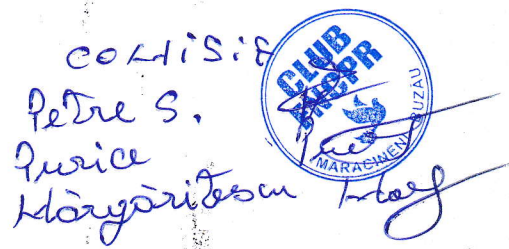 COMISIA
Petre S.
Purice
Mărgăritescu
CLUB
MARACINENI BUZAU